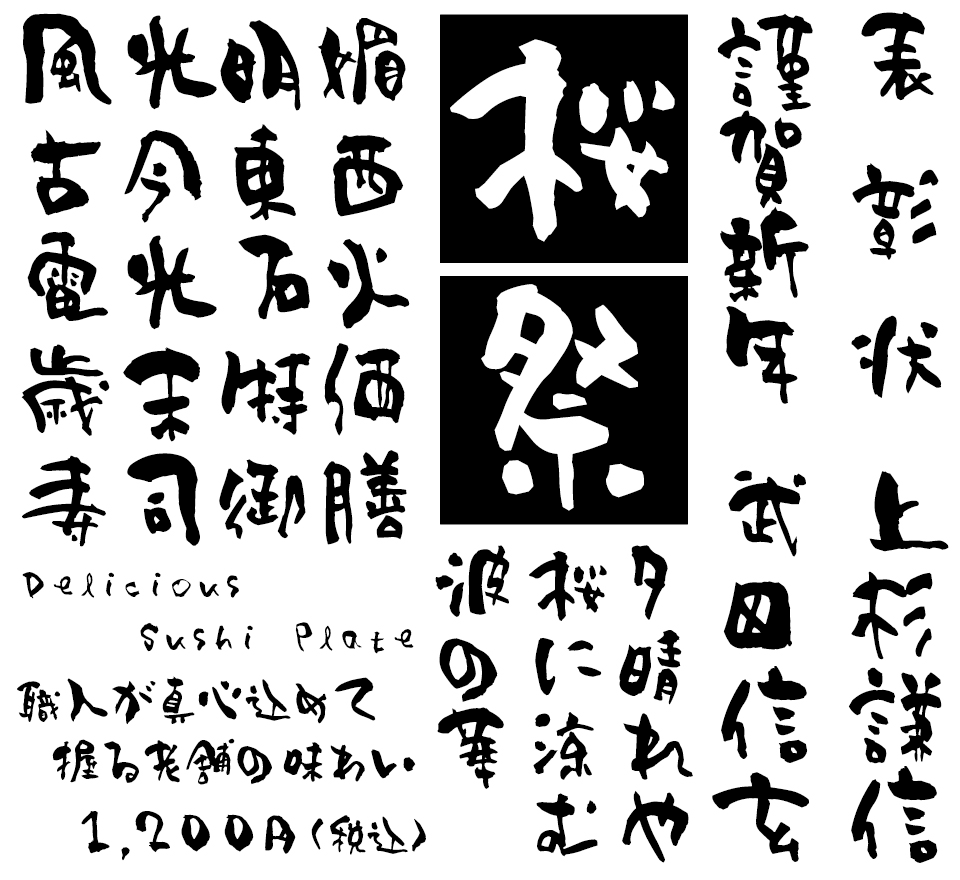 風光明媚
古今東西
電光石火
歳末特価
寿司御膳
Delicious
Sushi Plate
職人が真心込めて
握る老舗の味わい
1,200円(税込)
桜
祭
夕晴れや
桜に涼む
波の華
表彰状
上杉謙信
謹賀新年
武田信玄